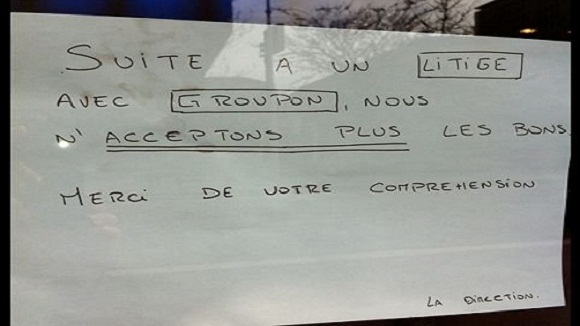 SUITE A UN LITIGE
AVEC GROUPON, NOUS
N' ACCEPTONS PLUS LES BONS.
MERCi DE VOTRE COMPREHENSION
LA DIRECTION.